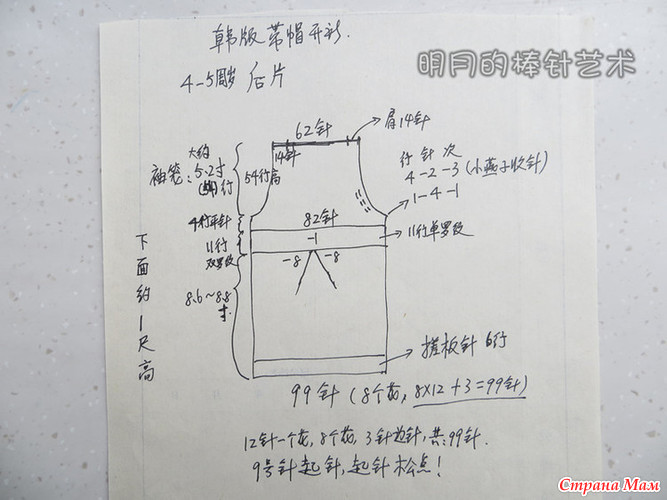 韩版带帽开衫.
明月的棒针艺术
4-5周岁 后片
62针
肩14针
14针
大约
袖笼: 5.2寸
54行高
行 针 次
4-2-3 (小燕子收针)
1-4-1
4行平针
82针
11行
双罗纹
-1
11行单罗纹
-8 -8
8.6~8.8
寸.
下面约1尺高
搓板针 6行
99针 (8个花, 8X12+3=99针)
12针一个花, 8个花, 3针边针, 共:99针.
9号针起针, 起针松点!
Страна Мам